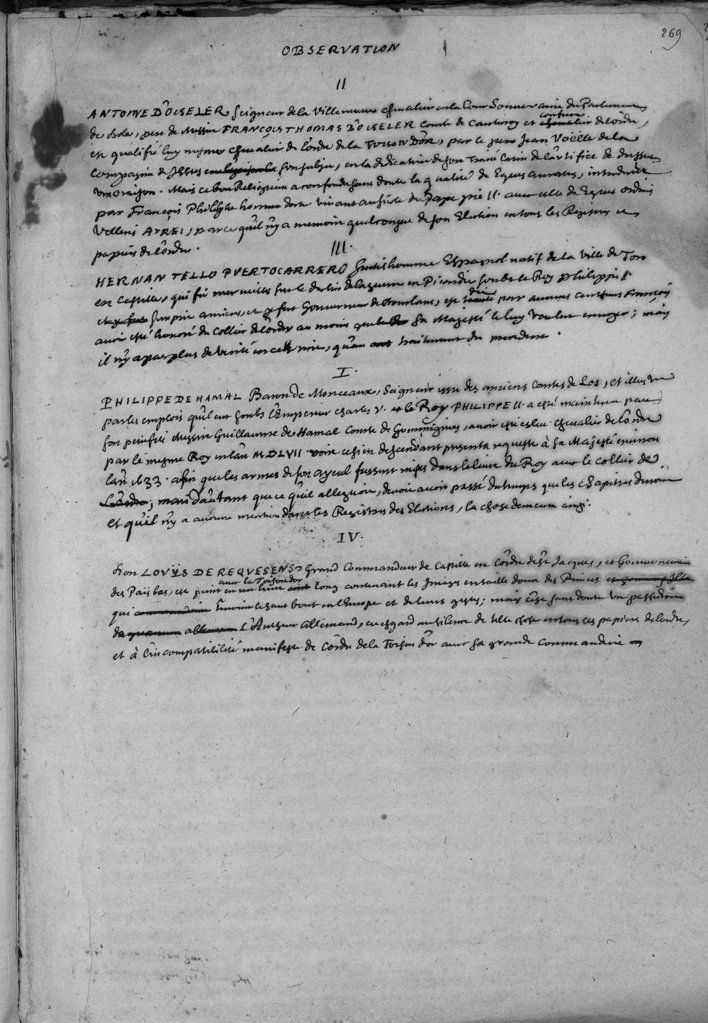 269
OBSERVATION
II
ANTOINE D'OISELER Seigneur de la Villeneuve chevalier en la Cour Souveraine du Parlement
de Dole, pere de Messire FRANCOIS THOMAS D'OISELER Comte de Cantecroy et confrere chevalier de l'ordre,
est qualifié luy mesme chevalier de l'ordre de la TOISON D'OR, par le pere Jean
Compagnie de Jesus en la dedication de son Traité Latin de l'artifice de
oraison. Mais ce bon Religieux a confondu sans doute la qualité de Eques auratus, introduite
par François Philelphe homme docte vivant au siecle du Pape pie II. avec celle de Eques ordinis
Velleris AUREI, parce qu'il n'y a memoire quelconque de son Election en tous les Registres et
papiers de l'ordre.
III.
HERNAN TELLO PUERTOCARRERO Gentilhomme Espagnol natif de la Ville de Toro
en Castille, qui fit merveilles sur le declin de la guerre en Picardie soubs le Roy Philippe II
et surprit amiens, et fut Gouverneur de Dourlans, est par aucuns autheurs François
avoir esté honoré du Collier de l'ordre au moins que Sa Majesté le luy voulut envoyer; mais
il n'y a pas plus de verité en cecy, qu'au traitement du precedent.
I.
PHILIPPE DE HAMAL Baron de Monceaux, Seigneur issu des anciens Comtes de Los, et illustre
par les emplois qu'il eut soubs l'Empereur charles V. et le Roy PHILIPPE II. a esté maintenu par
son petit fils Messire Guillaume de Hamal Comte de Gomignies, avoir esté esleu chevalier de l'ordre
par le mesme Roy en l'an M.D.LVII. voire ce sien descendant presenta requeste à Sa Majesté environ
l'an 1633. afin que les armes de son ayeul fussent mises dans le livre du Roy avec le collier de
l'ordre; mais d'autant que ce qu'il alleguoit, devoit avoir passé du temps que les chapitres
et qu'il n'y a aucune mention dans les Registres des Elections, la chose demeura ainsi.
IV.
Don LOUYS DE REQUESENS Grand Commandeur de Castille en l'ordre de St Jacques, et Gouverneur
des Pais bas, est peint avec la Toison d'or en un livre long contenant les Images en taille douce des Princes
qui tenoient le haut bout en l'Europe et de leurs gestes; mais c'est sans doute un
l'Autheur allemand, eu esgard au silence de telle chose en tous les papiers de l'ordre,
et à l'incompatibilité manifeste de l'ordre de la Toison d'or avec sa grande commanderie